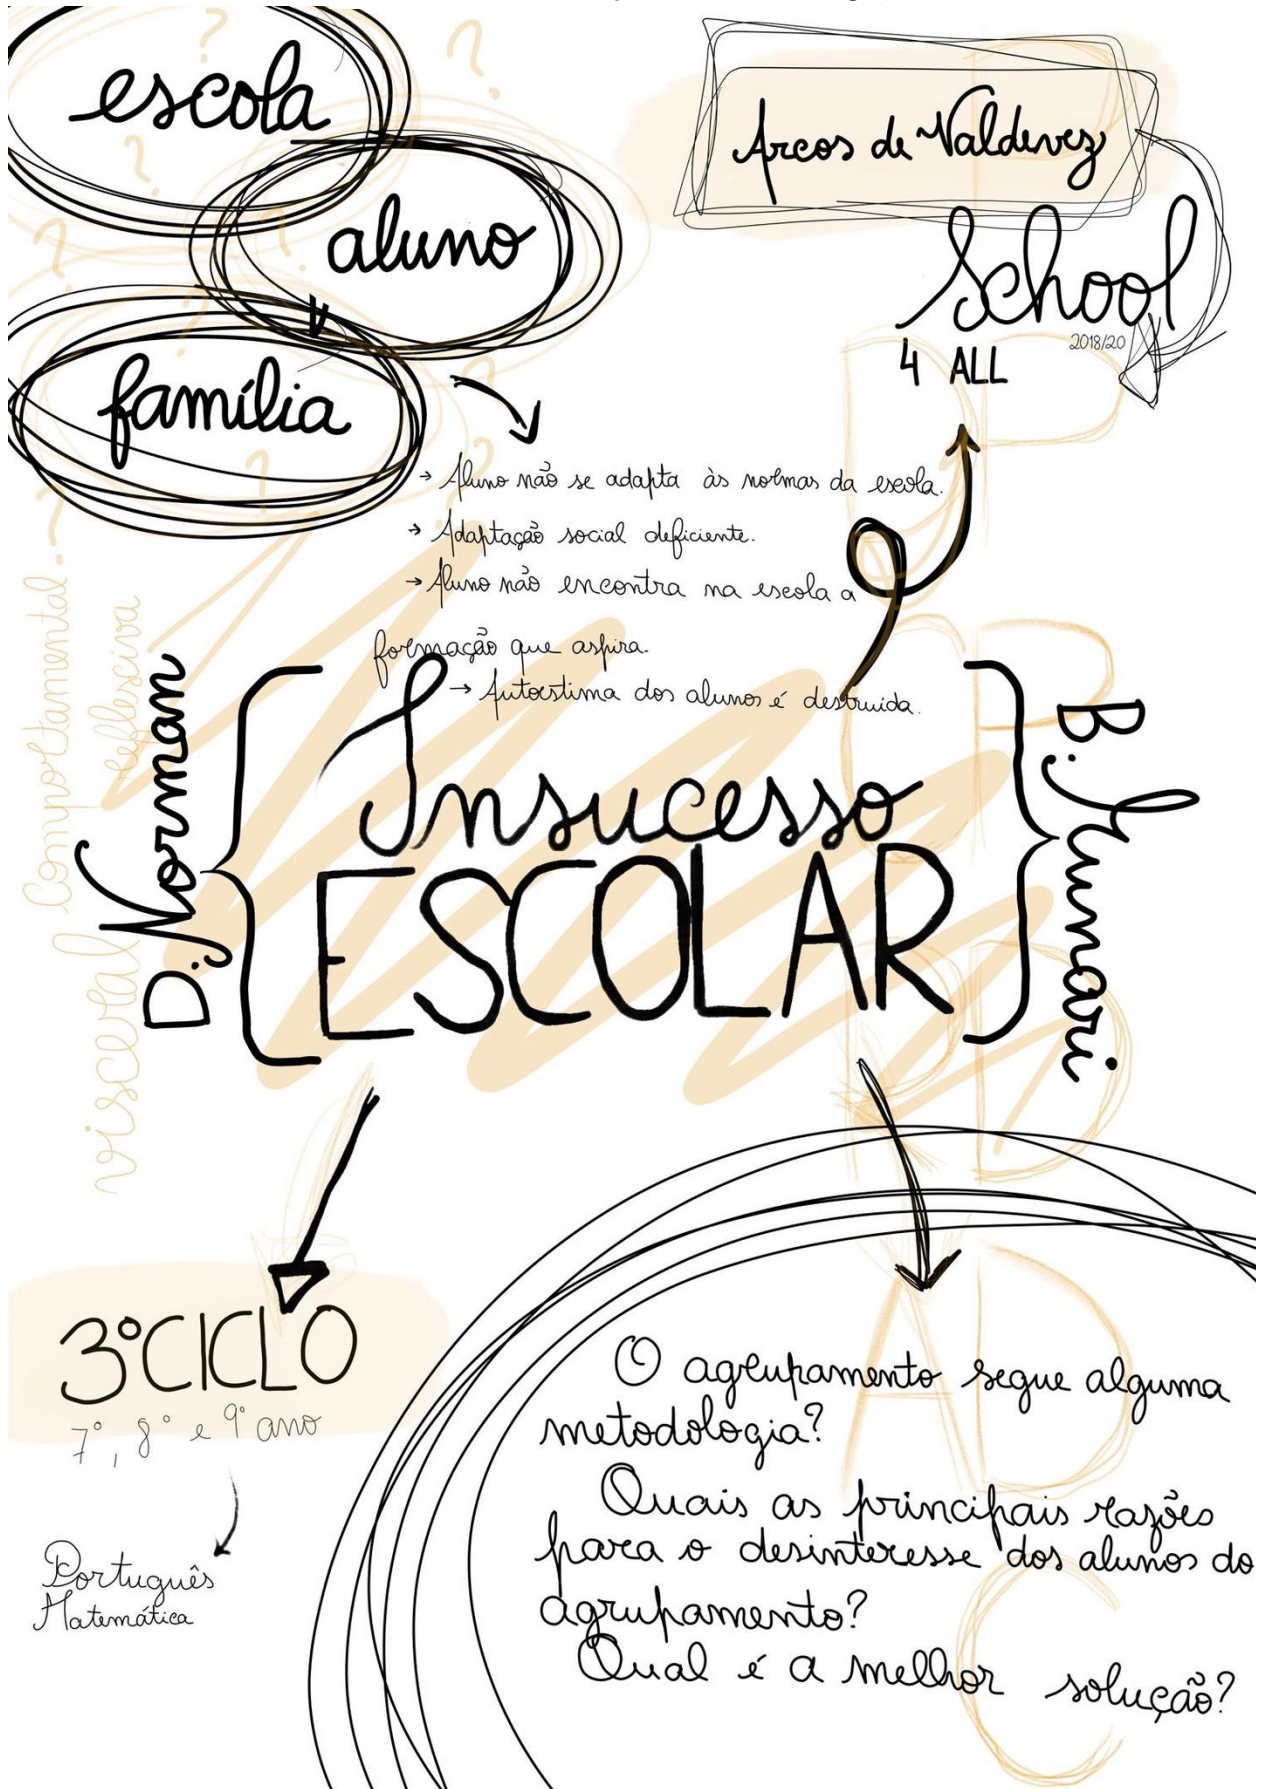 escola
aluno
família
Arcos de Valdevez
School
2018/20
4 ALL
→ Aluno não se adapta às normas da escola.
→ Adaptação social deficiente.
→ Aluno não encontra na escola a
formação que aspira.
→ Autoestima dos alunos é destruída.
D. Norman
visceral
Comportamental
reflexciva
Insucesso
ESCOLAR
B. Munari
3º CICLO
7º, 8º e 9º ano
Português
Matemática
O agrupamento segue alguma
metodologia?
Quais as principais razões
para o desinteresse dos alunos do
agrupamento?
Qual é a melhor solução?